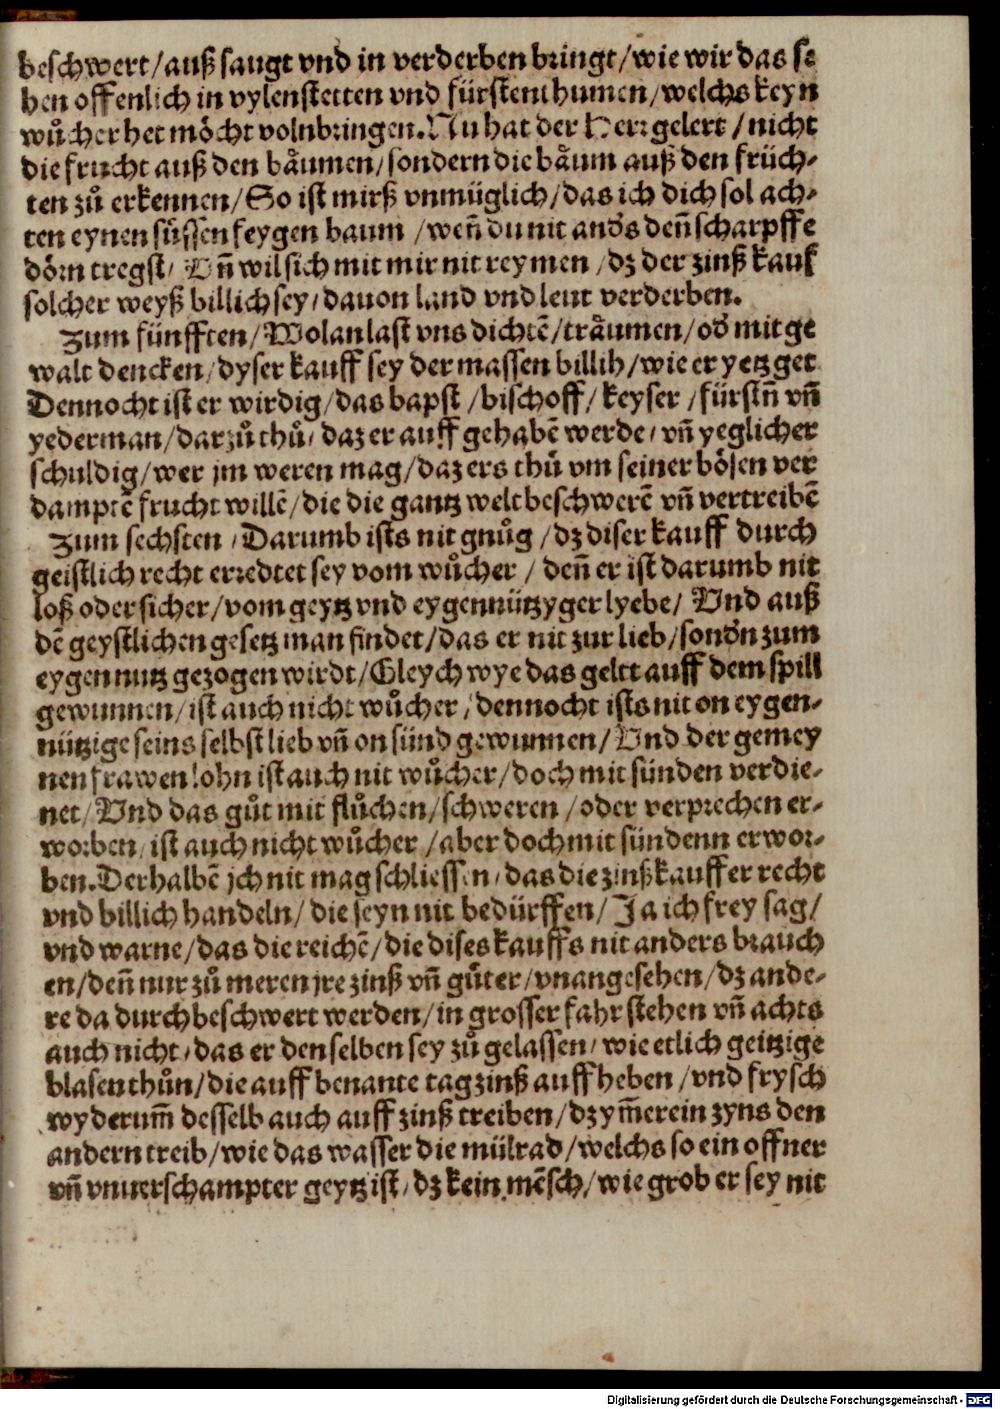 beschwert/auß saugt vnd in verderben bringt/wie wir das se
hen offenlich in vylen stetten vnd fürstenthumen/welchs keyn
wůcher het möcht volnbringen. Nu hat der Herr gelert/nicht
die frucht auß den bäumen/sondern die bäum auß den früch-
ten zů erkennen/So ist mirß vnmüglich/das ich dich sol ach-
ten eynen süssen feygen baum/weñ du nit anďs deñ scharpffe
dörn tregst/Vñ wil sich mit mir nit reymen/dz der zinß kauf
solcher weyß billich sey/dauon land vnd leut verderben.
Zum fünfften/Wolan last vns dichtē/träumen/oď mit ge
walt dencken/dyser kauff sey der massen billih/wie er yetz get
Dennocht ist er wirdig/das bapst/bischoff/keyser/fürstñ vñ
yederman/darzů thů/daz er auff gehabē werde/vñ yeglicher
schuldig/wer jm weren mag/daz ers thů vm seiner bösen ver
damptē frucht willē/die die gantz welt beschwerē vñ vertreibē
Zum sechsten/Darumb ists nit gnůg/dz diser kauff durch
geistlich recht erredtet sey vom wůcher/deñ er ist darumb nit
loß oder sicher/vom geytz vnd eygennützyger lyebe/Vnd auß
dē geystlichen gesetz man findet/das er nit zur lieb/sonďn zum
eygen nutz gezogen wirdt/Gleych wye das gelt auff dem spill
gewunnen/ist auch nicht wůcher/dennocht ists nit on eygen-
nützige seins selbst lieb vñ on sünd gewunnen/Vnd der gemey
nen frawen lohn ist auch nit wůcher/doch mit sünden verdie-
net/Vnd das gůt mit flůchen/schweren/oder verprechen er-
worben/ist auch nicht wůcher/aber doch mit sündenn erwor-
ben. Derhalbē jch nit mag schliessen/das die zinßkauffer recht
vnd billich handeln/die seyn nit bedürffen/Ja ich frey sag/
vnd warne/das die reichē/die dises kauffs nit anders brauch
en/deñ nur zů meren jre zinß vñ gůter/vnangesehen/dz ande-
re da durch beschwert werden/in grosser fahr stehen vñ achts
auch nicht/das er den selben sey zů gelassen/wie etlich geitzige
blasen thůn/die auff benante tag zinß auff heben/vnd frysch
wyderum̃ desselb auch auff zinß treiben/dz ym̃er ein zyns den
andern treib/wie das wasser die mülrad/welchs so ein offner
vñ vnuerschampter geytz ist/dz kein mēsch/wie grob er sey nit
Digitalisierung gefördert durch die Deutsche Forschungsgemeinschaft - DFG